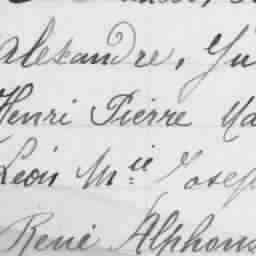 Alexandre, Ju
Henri Pierre Ma
Léon M.ie Joseph
René Alphons